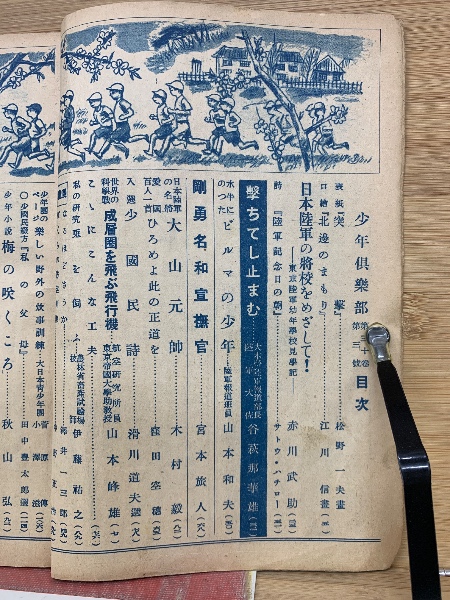 少年倶樂部 第 卷 第三號 目次
表紙『突撃』 松野一夫畫
口繪『北邊のまもり』 江川信畫
日本陸軍の將校をめざして！
―東京陸軍幼年學校見學記― 赤川武助
詩『陸軍記念日の朝』 サトウ・ハチロー
擊ちてし止まむ 大本營陸軍報道部長 陸軍大佐 谷萩那華雄
水牛にのつた ビルマの少年 陸軍報道班員 山本和夫
剛勇名和宣撫官 宮本旅人
日本陸軍の名將 大山元帥 木村毅
愛國百人一首 ひろめよ此の正道を 窪田空穗
入選少國民詩 滑川道夫選
世界の科學戰 成層圈を飛ぶ飛行機 航空研究所員 東京帝國大學助教授 山本峰雄
こんにこんな工夫
私の研究 兎を飼ふ 農林省畜產試驗場技師 伊藤祐之
少年團のページ 樂しい野外の放課訓練 大日本青少年團 菅原傳 小澤滋
○少國民慰方『私の父母』 田中豐太郎選
少年小說 梅の咲くころ 秋山弘